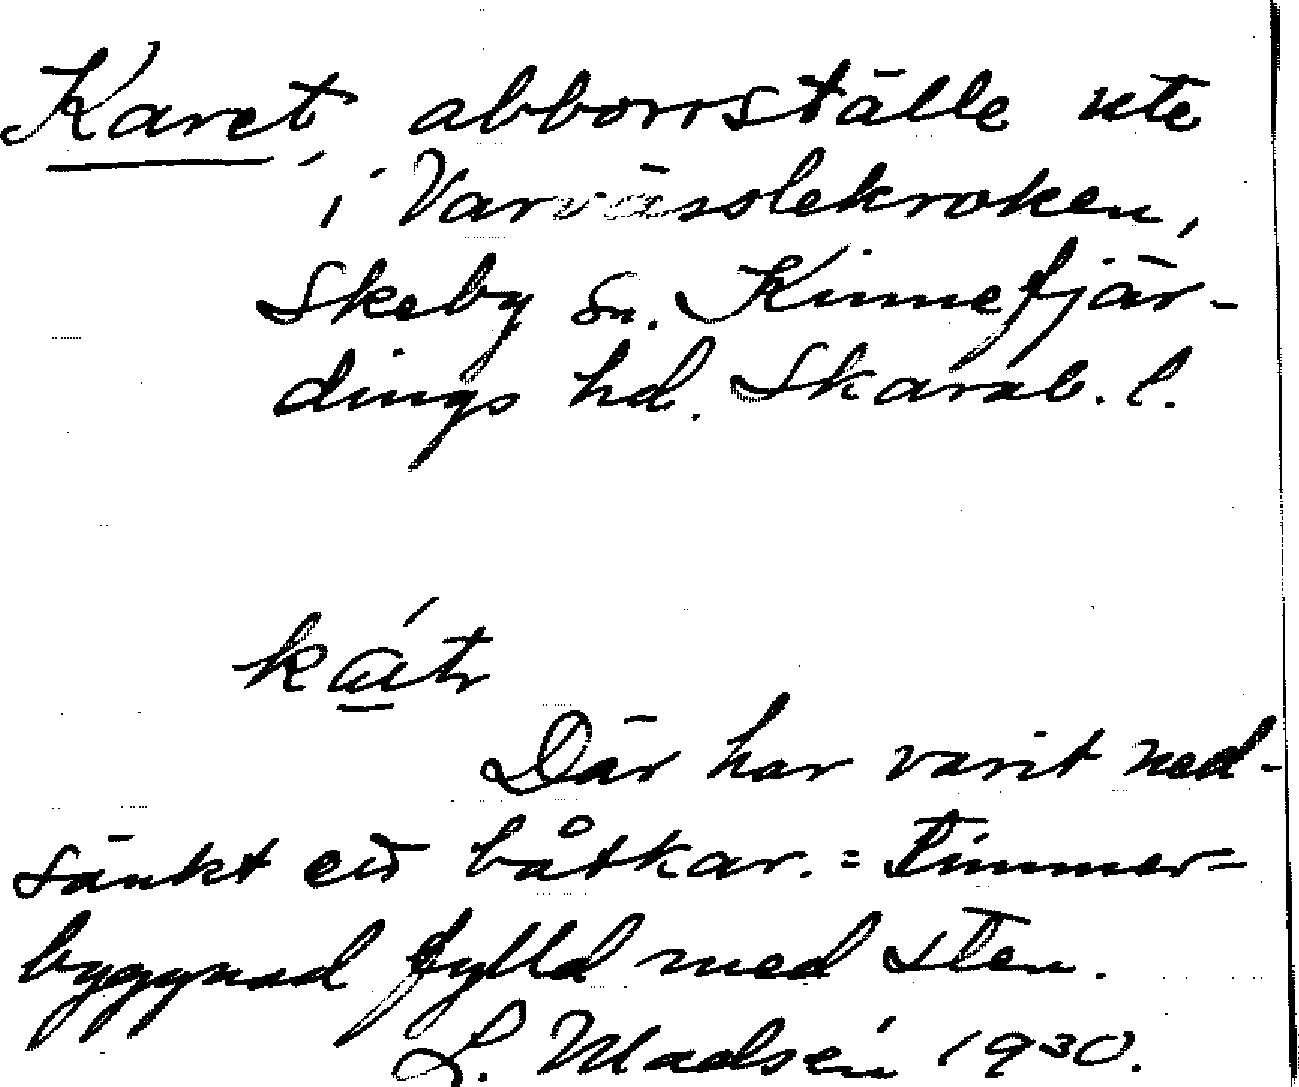 Karet, abborrställe ute
i Varvässlekroken,
Skeby sn. Kinnefjär-
dings hd. Skarab. l.
Där har varit ned-
sänkt ett båtkar. = Timmer-
byggnad fylld med sten.
L. Madsén 1930.